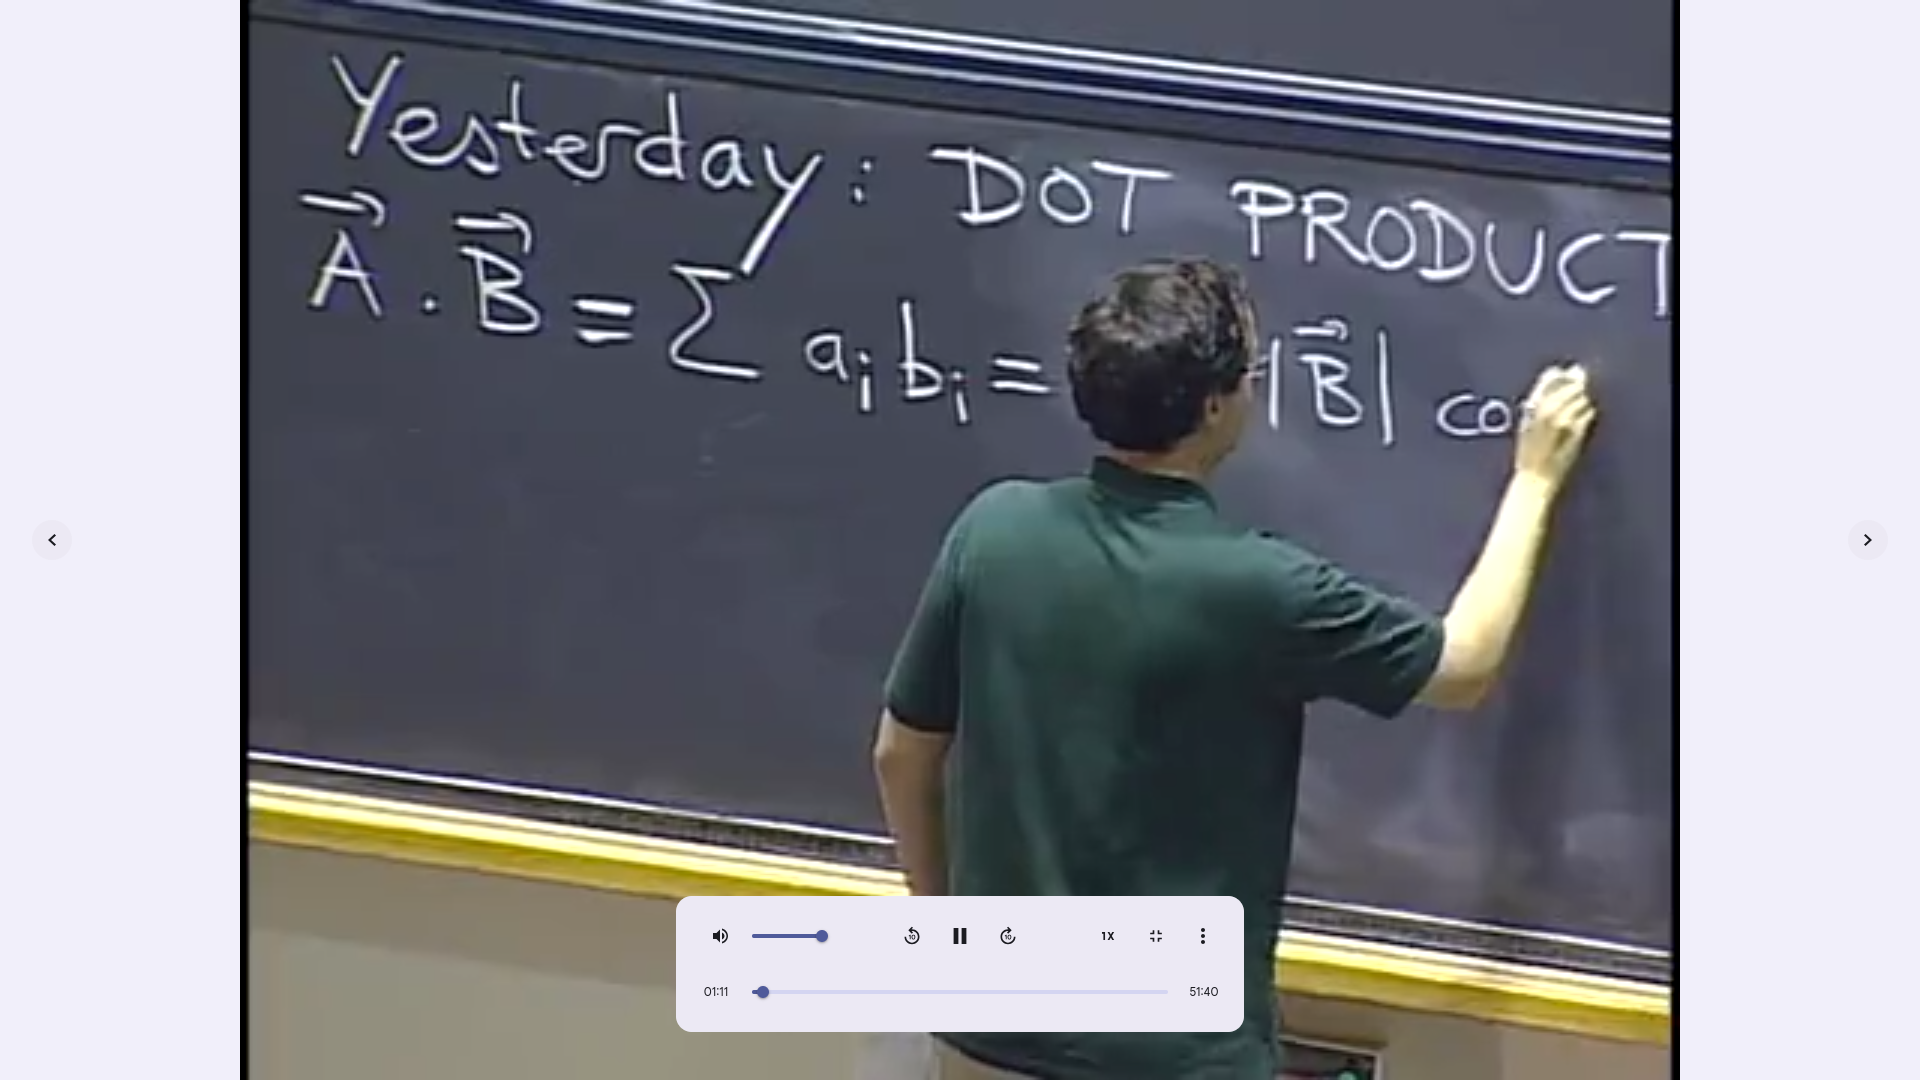 Yesterday: DOT PRODUCT
A⃗ · B⃗ = Σ aᵢ bᵢ = |B⃗| co
1X
01:11 51:40